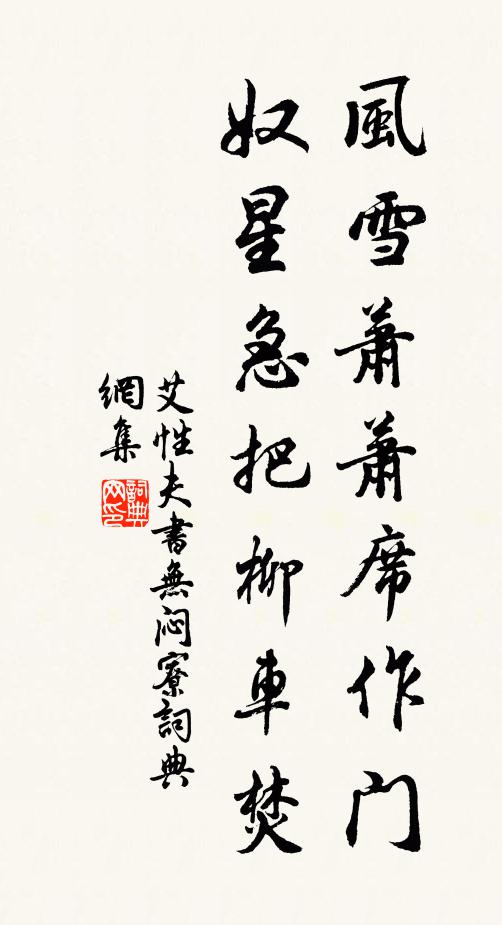 風雪蕭蕭席作门
奴星急把柳車焚
艾性夫書無悶寮詞典
網集
詞典网印